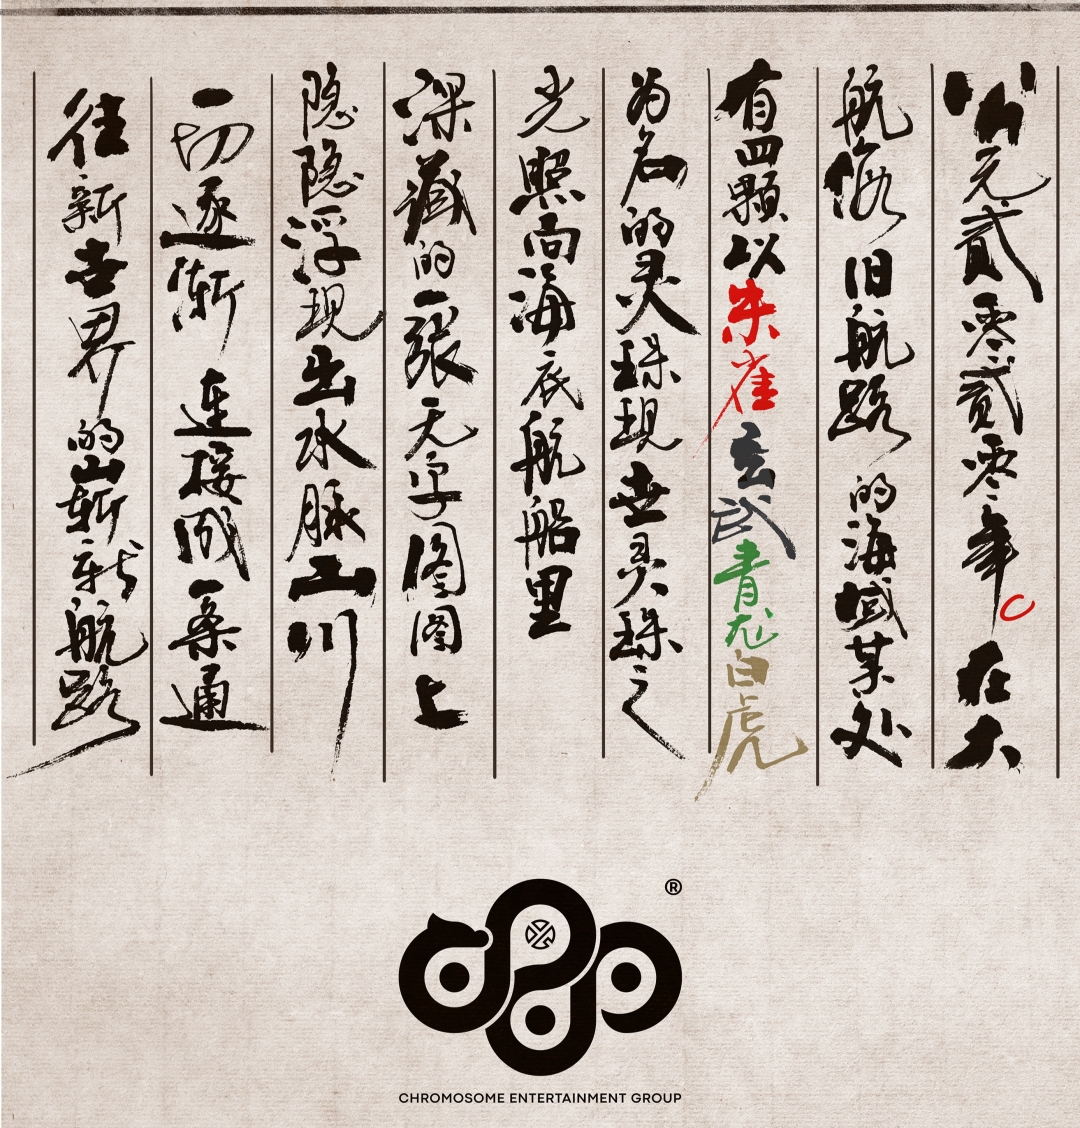 公元贰零贰零年 在大
航海旧航路的海域某处
有四顆以朱雀玄武青龙白虎
为名的灵珠现世灵珠之
光照向海底航船里
深藏的一張无字图图上
隐隐浮现出水脉山川
一切逐渐连接成一条通
往新世界的崭新航路
®
CHROMOSOME ENTERTAINMENT GROUP